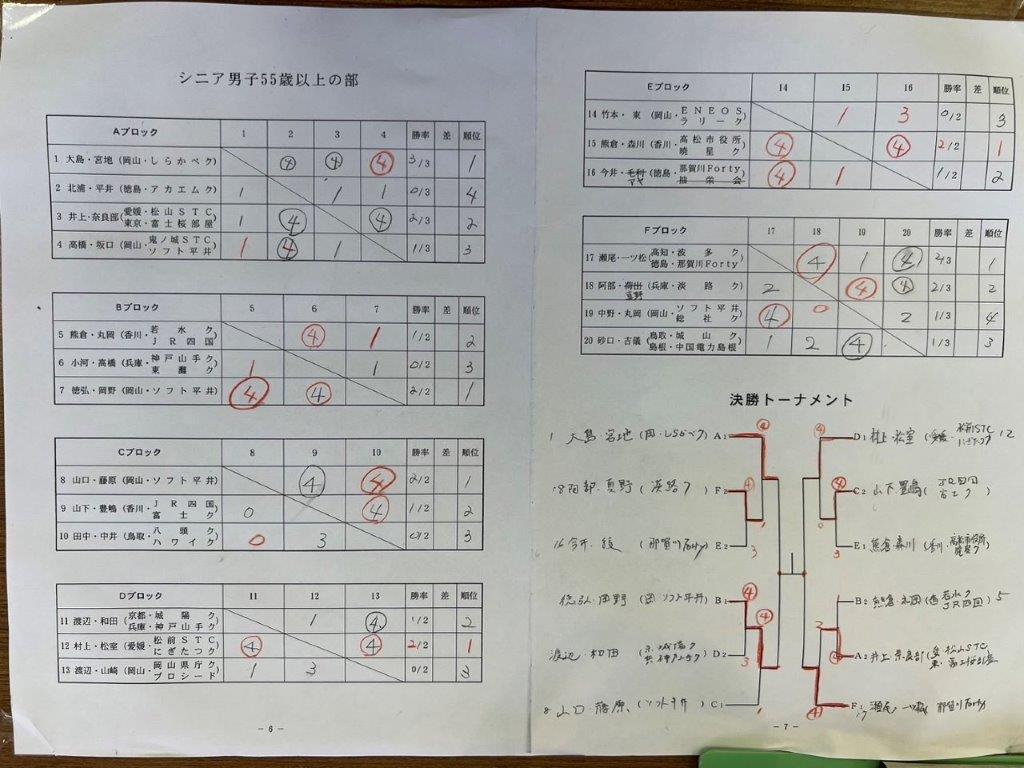 シニア男子55歳以上の部
Aブロック 1 2 3 4 勝率 差 順位
1 大島・宮地 (岡山・しらかべク) ④ ④ ④ 3/3 1
2 北浦・平井 (徳島・アカエムク) 1 1 1 0/3 4
3 井上・奈良部 (愛媛・松山STC 東京・富士桜部屋) 1 ④ ④ 2/3 2
4 高橋・坂口 (岡山・鬼ノ城STC ソフト平井) 1 ④ 1 1/3 3
Bブロック 5 6 7 勝率 差 順位
5 熊倉・丸岡 (香川・若水ク JR四国) ④ 1 1/2 2
6 小河・高橋 (兵庫・神戸山手ク 東灘ク) 1 1 0/2 3
7 徳弘・岡野 (岡山・ソフト平井) ④ ④ 2/2 1
Cブロック 8 9 10 勝率 差 順位
8 山口・藤原 (岡山・ソフト平井) ④ ④ 2/2 1
9 山下・豊嶋 (香川・JR四国 富士ク) 0 ④ 1/2 2
10 田中・中井 (鳥取・八頭ク ハワイク) 0 3 0/2 3
Dブロック 11 12 13 勝率 差 順位
11 渡辺・和田 (京都・城陽ク 兵庫・神戸山手ク) 1 ④ 1/2 2
12 村上・松室 (愛媛・松前STC にぎたつク) ④ ④ 2/2 1
13 渡辺・山崎 (岡山・岡山県庁ク プロシード) 1 3 0/2 3
－6－
Eブロック 14 15 16 勝率 差 順位
14 竹本・東 (岡山・ENEOS ラリーク) 1 3 0/2 3
15 熊倉・森川 (香川・高松市役所 暁星ク) ④ ④ 2/2 1
16 今井・ (徳島・那賀川Forty) ④ 1 1/2 2
Fブロック 17 18 19 20 勝率 差 順位
17 瀬尾・一ツ松 (高知・波多ク 徳島・那賀川Forty) ④ 1 ④ 2/3 1
18 阿部・真野 (兵庫・淡路ク) 2 ④ ④ 2/3 2
19 中野・丸岡 (岡山・ソフト平井 総社ク) ④ 0 2 1/3 4
20 砂口・古儀 (鳥取・城山ク 島根・中国電力島根) 1 2 ④ 1/3 3
決勝トーナメント
1 大島・宮地 (岡・しらかべク) A1 ④
18 阿部・真野 (淡路ク) F2 ④ 1
16 今井・ (那賀川Forty) E2 3
徳弘・岡野 (岡・ソフト平井) B1 ④
渡辺・和田 D2 3 ④
8 山口・藤原 (ソフト平井) C1 1
④ D1 村上・松室 (愛媛・松前STC にぎたつク) 12
④ C2 山下・豊嶋 (JR四国 富士ク)
0 3 E1 熊倉・森川 (香川・高松市役所 暁星ク)
1 B2 熊倉・丸岡 (香・若水ク JR四国) 5
2 ④ A2 井上・奈良部 (愛・松山STC 東・富士桜部屋)
④ F1 17 瀬尾・一ツ松 那賀川Forty
－7－